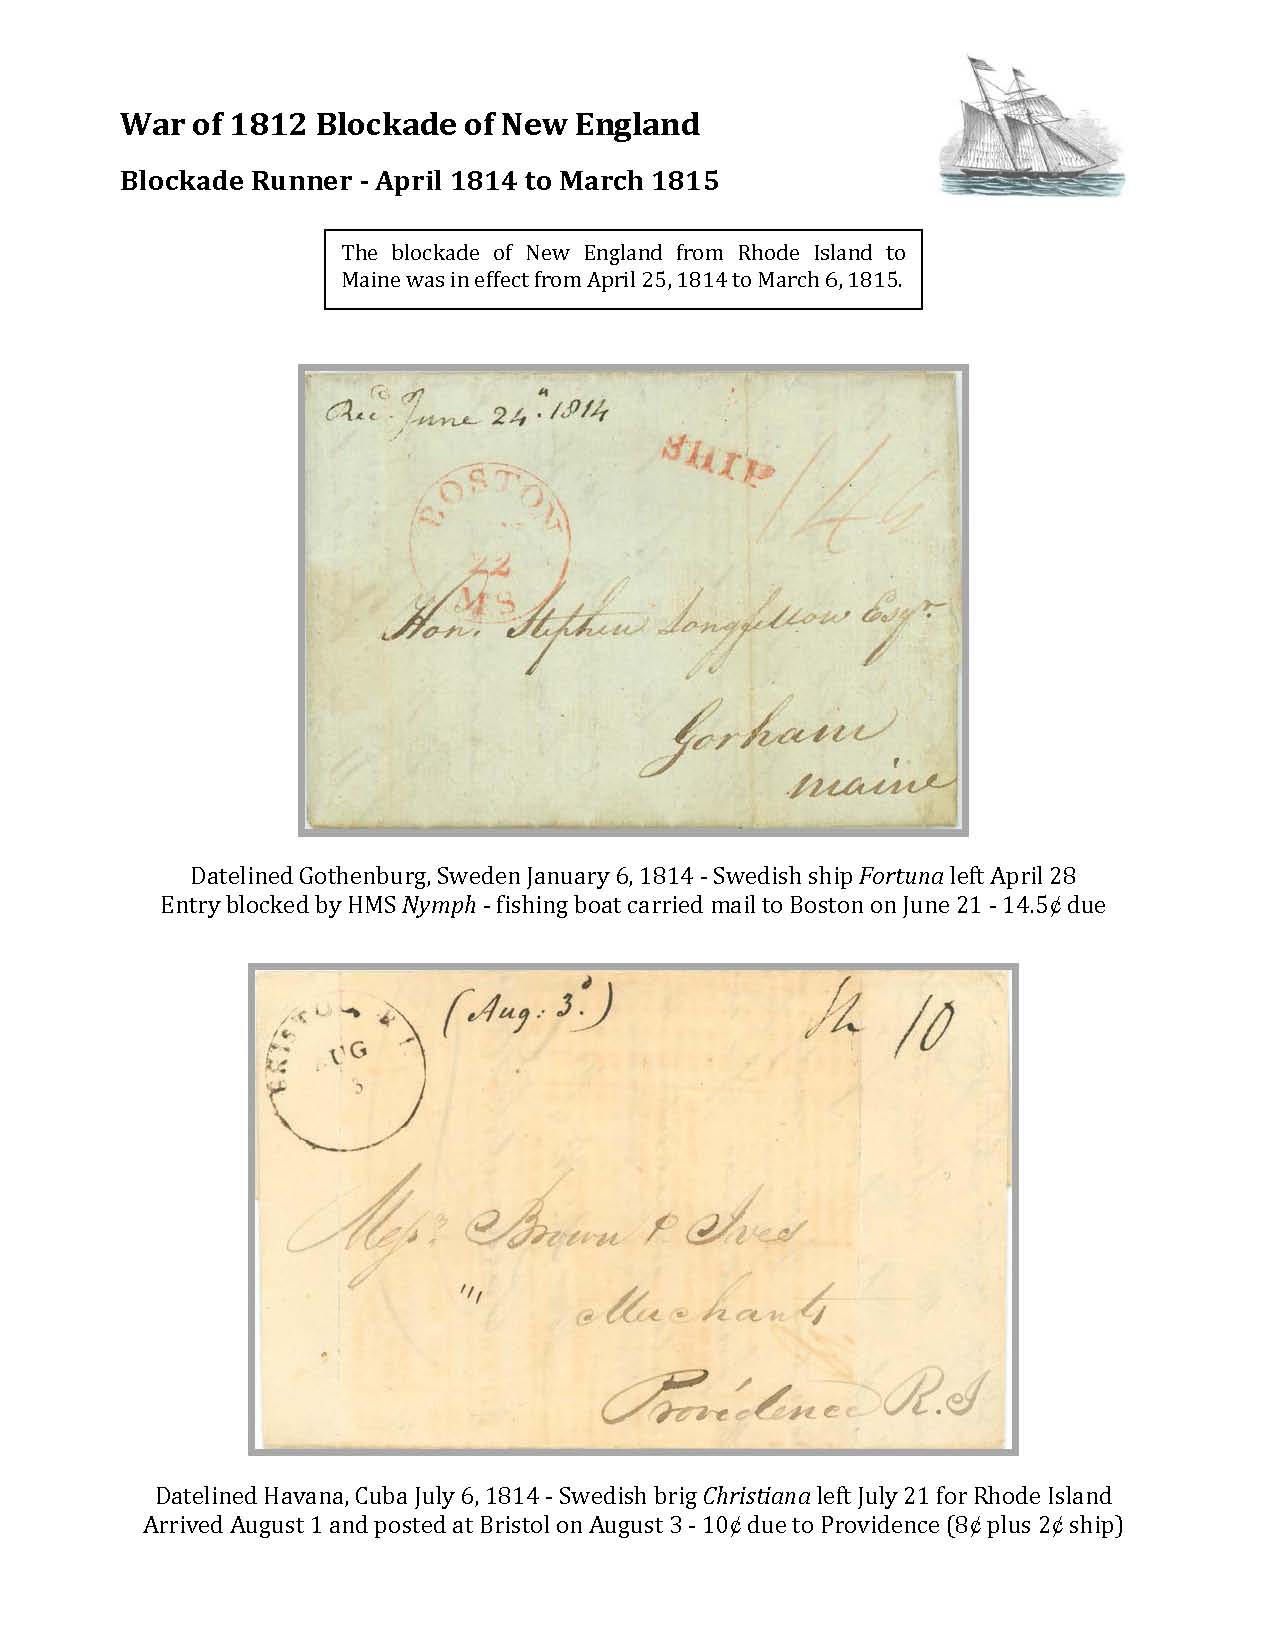 War of 1812 Blockade of New England
Blockade Runner - April 1814 to March 1815
The blockade of New England from Rhode Island to
Maine was in effect from April 25, 1814 to March 6, 1815.
Recd. June 24". 1814
SHIP
14½
BOSTON
22
MS
Hon. Stephen Longfellow Esqr.
Gorham
maine
Datelined Gothenburg, Sweden January 6, 1814 - Swedish ship Fortuna left April 28
Entry blocked by HMS Nymph - fishing boat carried mail to Boston on June 21 - 14.5¢ due
BRISTOL R.I.
AUG
3
(Aug: 3d.)
Sh 10
Messrs. Brown & Ives
Merchants
Providence R.I
Datelined Havana, Cuba July 6, 1814 - Swedish brig Christiana left July 21 for Rhode Island
Arrived August 1 and posted at Bristol on August 3 - 10¢ due to Providence (8¢ plus 2¢ ship)